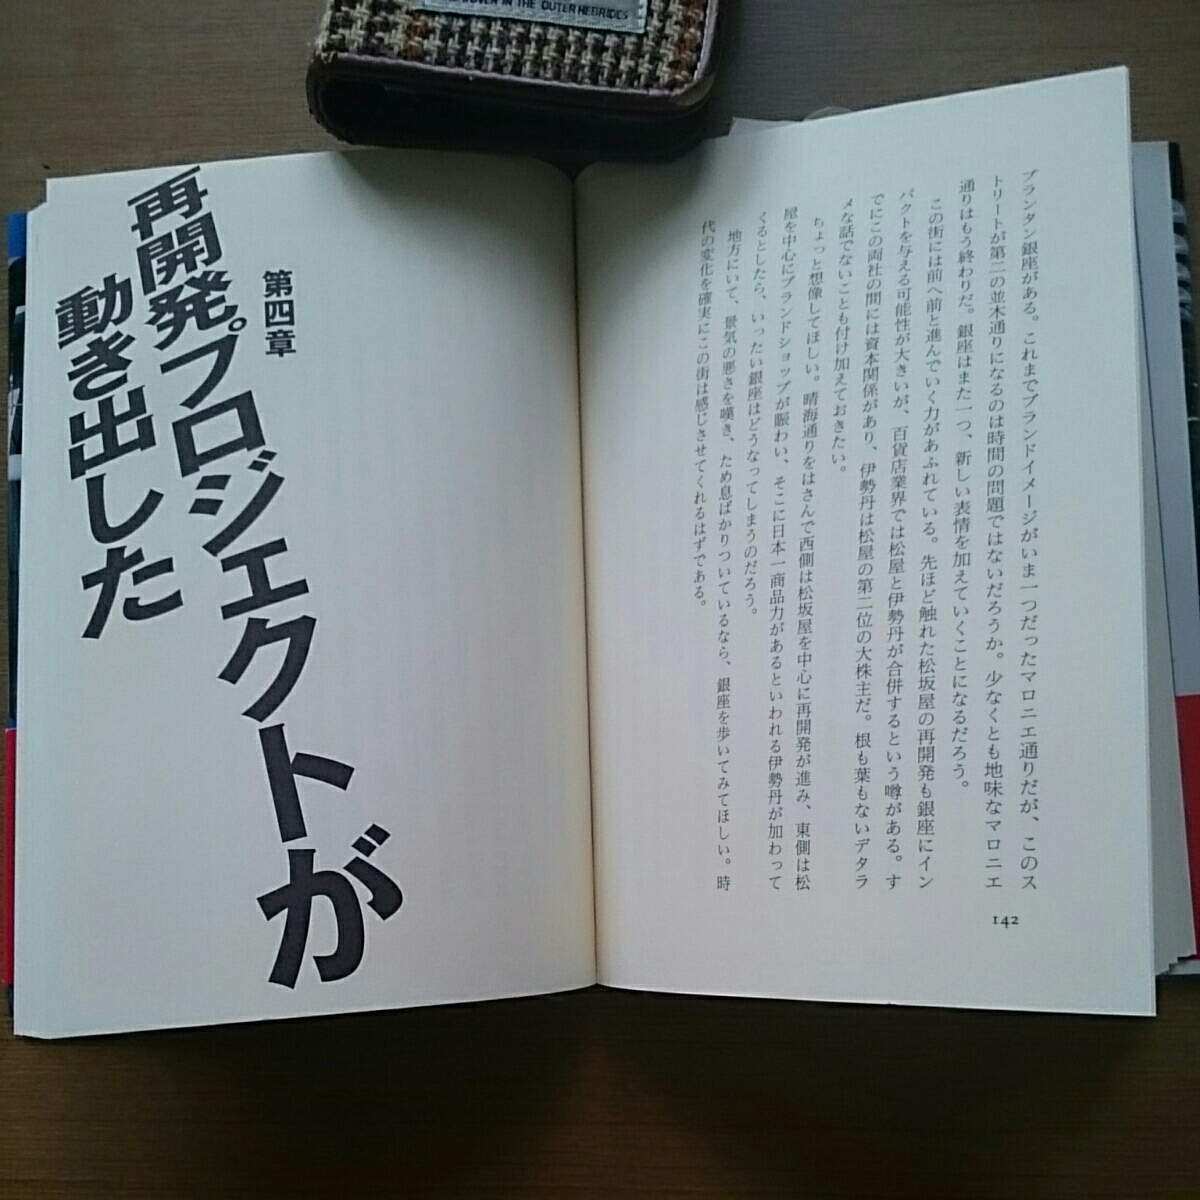 OVEN IN THE OUTER HEBRIDES
ブランタン銀座がある。これまでブランドイメージがいま一つだったマロニエ通りだが、このス
トリートが第二の並木通りになるのは時間の問題ではないだろうか。少なくとも地味なマロニエ
通りはもう終わりだ。銀座はまた一つ、新しい表情を加えていくことになるだろう。
この街には前へ前と進んでいく力があふれている。先ほど触れた松坂屋の再開発も銀座にイン
パクトを与える可能性が大きいが、百貨店業界では松屋と伊勢丹が合併するという噂がある。す
でにこの両社の間には資本関係があり、伊勢丹は松屋の第二位の大株主だ。根も葉もないデタラ
メな話でないことも付け加えておきたい。
ちょっと想像してほしい。晴海通りをはさんで西側は松坂屋を中心に再開発が進み、東側は松
屋を中心にブランドショップが賑わい、そこに日本一商品力があるといわれる伊勢丹が加わって
くるとしたら、いったい銀座はどうなってしまうのだろう。
地方にいて、景気の悪さを嘆き、ため息ばかりついているなら、銀座を歩いてみてほしい。時
代の変化を確実にこの街は感じさせてくれるはずである。
142
第四章
再開発プロジェクトが
動き出した